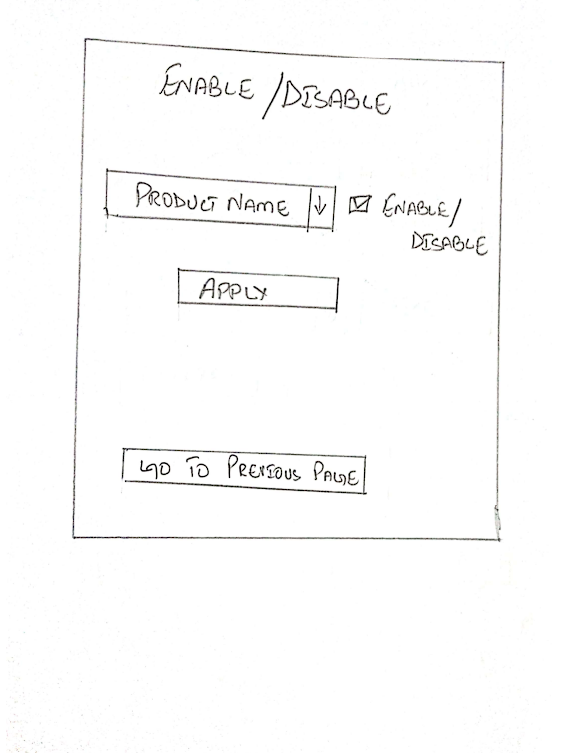 ENABLE/DISABLE
PRODUCT NAME
ENABLE/
DISABLE
APPLY
GO TO PREVIOUS PAGE